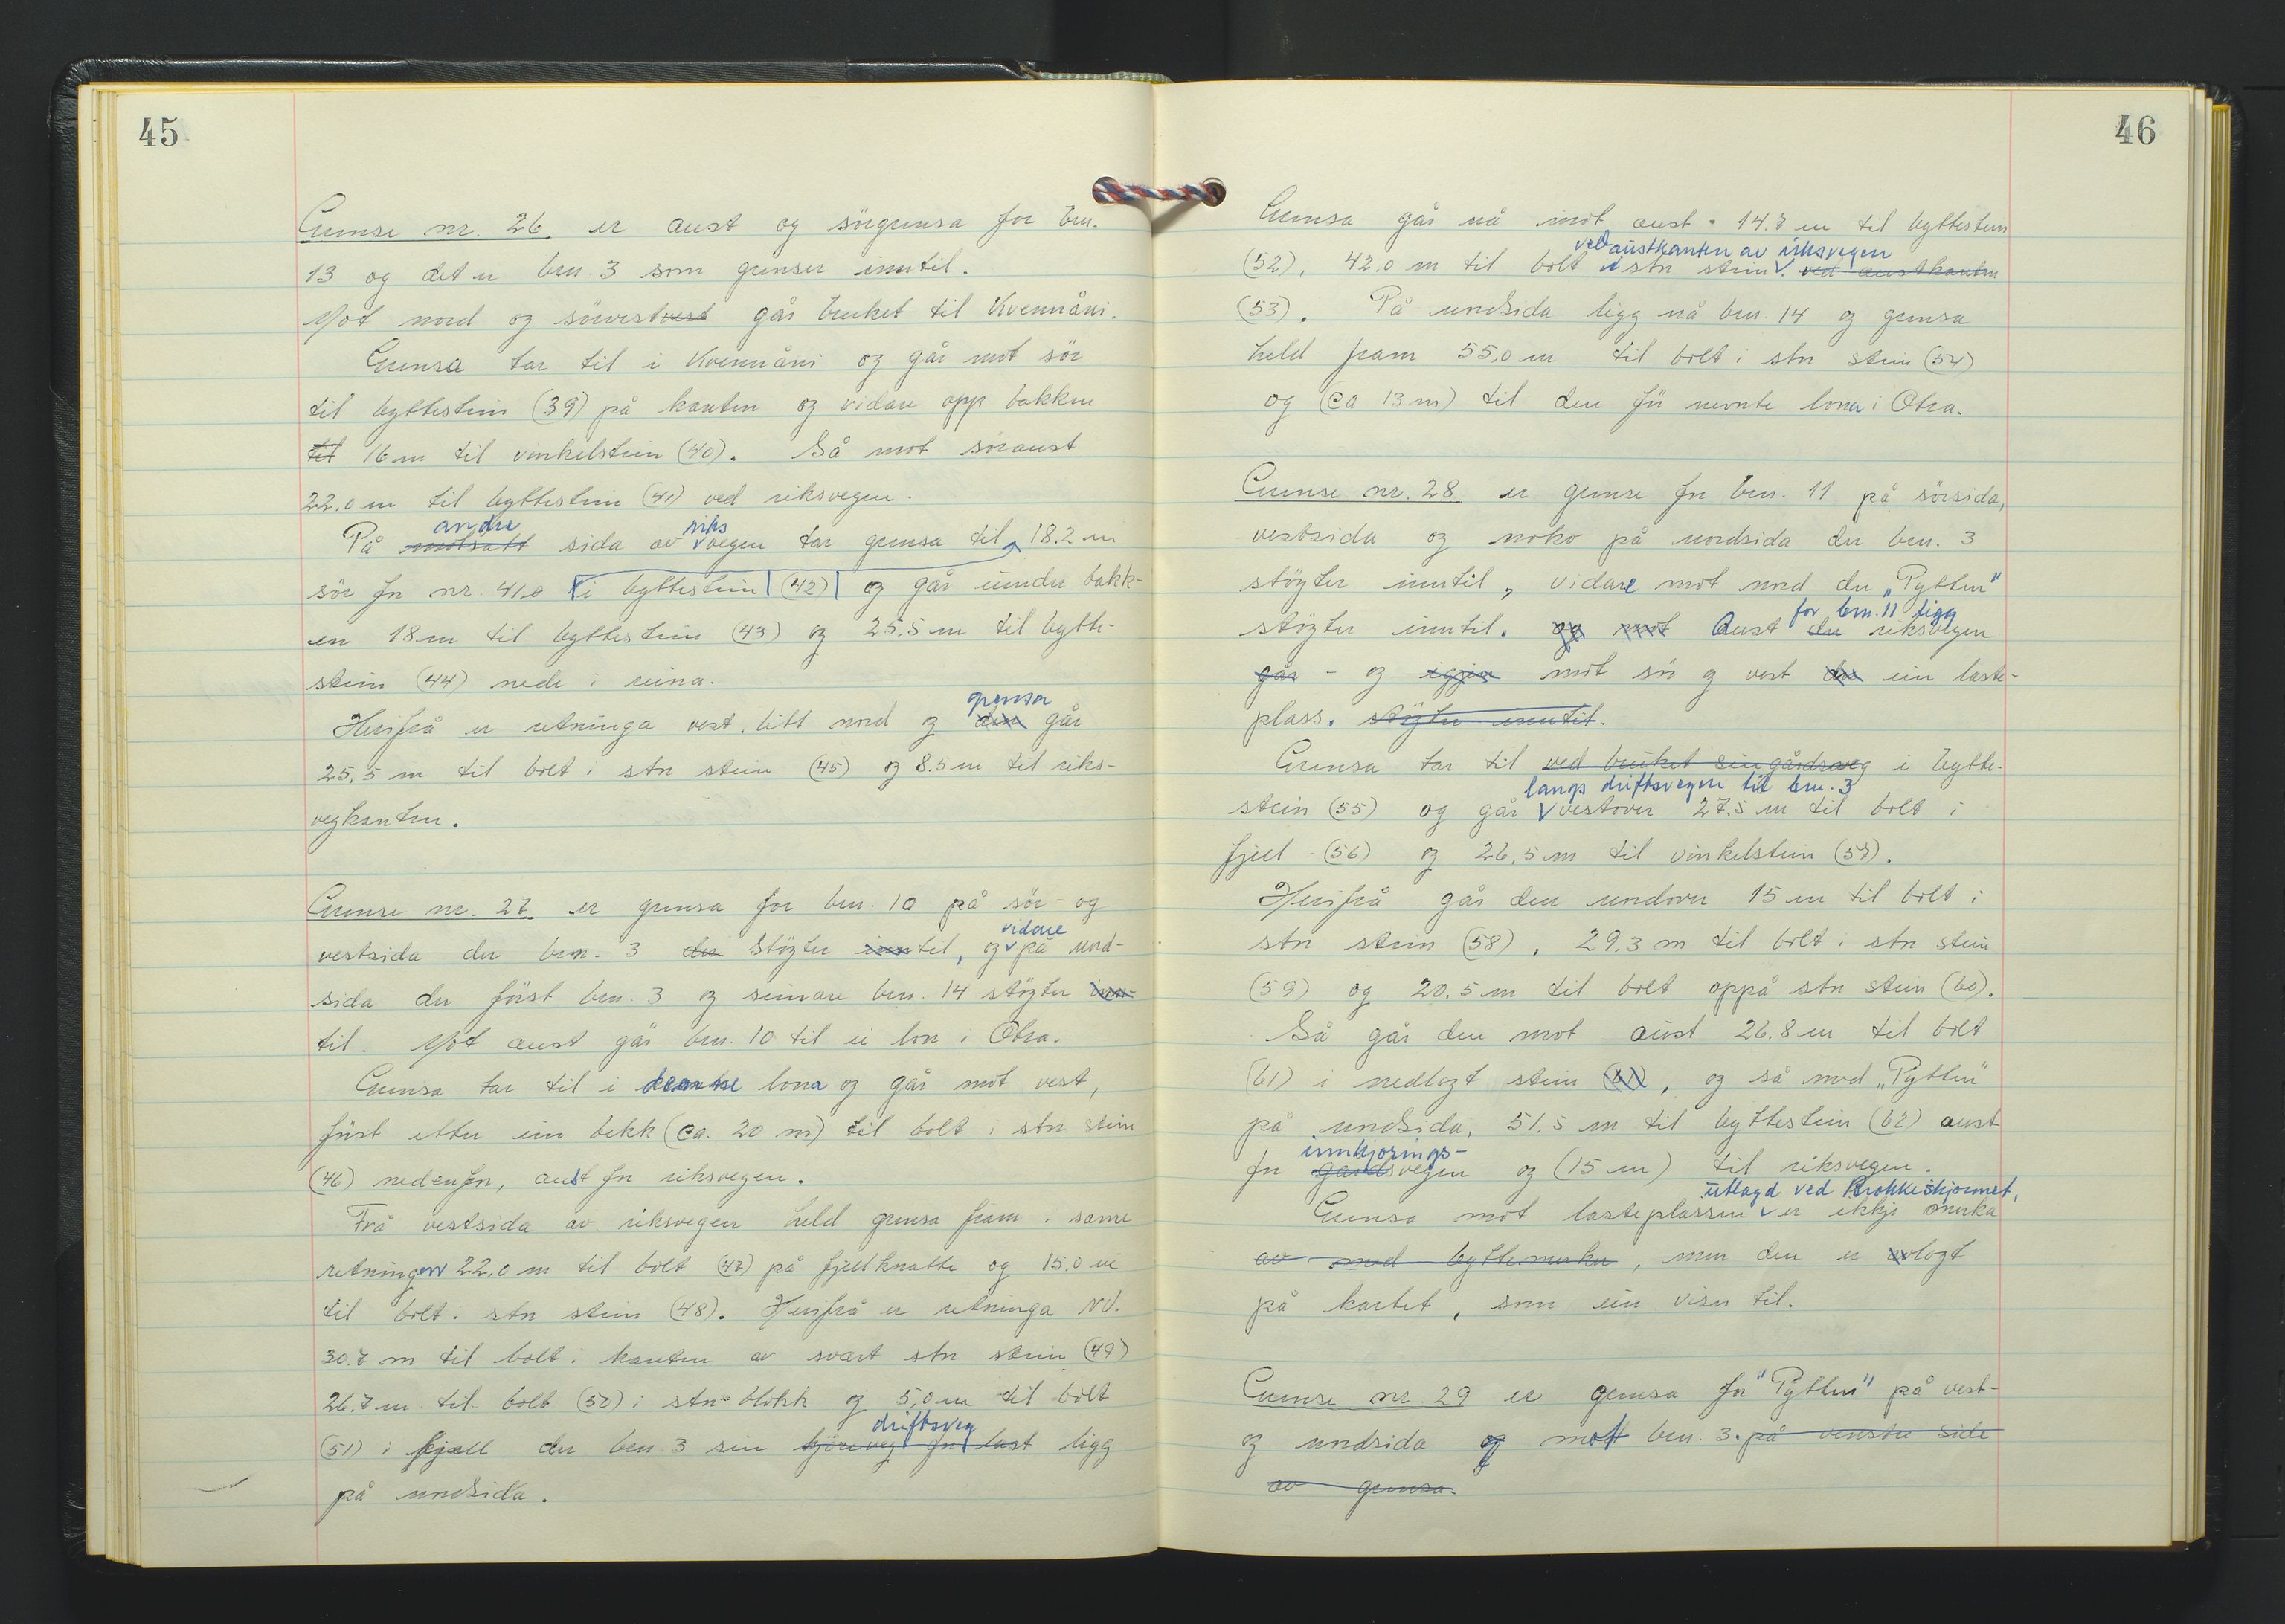 45
Grense nr. 26 er aust og sörgrensa for bru.
13 og det er bru. 3 som grenser inntil.
Mot nord og sörvestvest går bruket til Kvennåni.
Grensa tar til i Kvennåni og går mot sör
til byttestein (39) på kanten og vidare opp bakken
til 16 m til vinkelstein (40). Så mot söraust
22,0 m til byttestein (41) ved riksvegen.
andre riks
På motsatt sida av vegen tar grensa til 18.2 m
sör for nr. 41, i byttestein (42) og går under bakk-
en 18 m til byttestein (43) og 25,5 m til bytte-
stein (44) nede i reina.
grensa
Herifrå er retninga vest, litt nord og den går
25,5 m til bolt i stor stein (45) og 8.5 m til riks-
vegkanten.
Grense nr. 27 er grensa for bru. 10 på sör- og
vidare
vestsida der bru. 3 der stöyter inntil, og på nord-
sida der först bru. 3 og seinare bru. 14 stöyter inn-
til. Mot aust går bru. 10 til ei lon i Otra.
Grensa tar til i denne lona og går mot vest,
först etter ein bekk (ca. 20 m) til bolt i stor stein
(46) nedenfor, aust for riksvegen.
Frå vestsida av riksvegen held grensa fram i same
retningen 22,0 m til bolt (47) på fjellknatte og 15.0 m
til bolt i stor stein (48). Herifrå er retninga NV.
30.7 m til bolt i kanten av svært stor stein (49)
26.7 m til bolt (50) i stor blokk og 5,0 m til bolt
driftsveg
(51) i fjell der bru. 3 sin kjöreveg for last ligg
på nordsida.
46
Grensa går nå mot aust 14.7 m til byttestein
ved austkanten av riksvegen
(52), 42.0 m til bolt i stor stein ved austkanten
(53). På nordsida ligg nå bru. 14 og grensa
held fram 55,0 m til bolt i stor stein (54)
og (ca 13 m) til den för nevnte lona i Otra.
Grense nr. 28 er grense for bru. 11 på sörsida,
vestsida og noko på nordsida der bru. 3
stöyter inntil, vidare mot nord der „Pytten"
for bru. 11 ligg
stöyter inntil. og mot Aust der riksvegen
går - og igjen mot sör og vest der ein laste-
plass. stöyter inntil.
Grensa tar til ved bruket sin gårdsveg i bytte-
langs driftsvegen til bru. 3
stein (55) og går vestover 27.5 m til bolt i
fjell (56) og 26,5 m til vinkelstein (57).
Herifrå går den nordover 15 m til bolt i
stor stein (58), 29.3 m til bolt i stor stein
(59) og 20.5 m til bolt oppå stor stein (60).
Så går den mot aust 26.8 m til bolt
(61) i nedlagt stein (61), og så med „Pytten"
på nordsida, 51.5 m til byttestein (62) aust
innkjørings-
for gardsvegen og (15 m) til riksvegen.
utlagd ved Brokkeskjerunet,
Grensa mot lasteplassen er ikkje merka
av med byttemerker, men den er avlagt
på kartet, som ein viser til.
Grense nr. 29 er grensa for "Pytten" på vest-
og nordsida og mot bru. 3. på venstre side
av grensa.